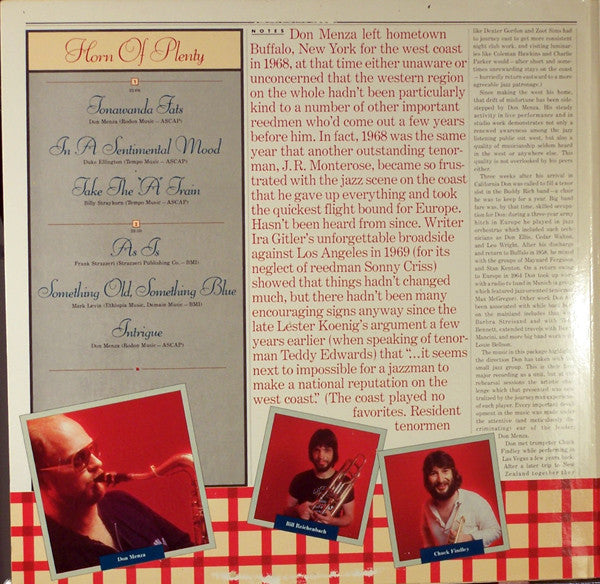 Horn Of Plenty
1
Tonawanda Fats
Don Menza (Rodon Music — ASCAP)
In A Sentimental Mood
Duke Ellington (Tempo Music — ASCAP)
Take The "A" Train
Billy Strayhorn (Tempo Music — ASCAP)
2
As Is
Frank Strazzeri (Strazzeri Publishing Co. — BMI)
Something Old, Something Blue
Mark Levin (Ethiopia Music, Demain Music — BMI)
Intrigue
Don Menza (Rodon Music — ASCAP)
NOTES Don Menza left hometown
Buffalo, New York for the west coast
in 1968, at that time either unaware or
unconcerned that the western region
on the whole hadn't been particularly
kind to a number of other important
reedmen who'd come out a few years
before him. In fact, 1968 was the same
year that another outstanding tenor-
man, J.R. Monterose, became so frus-
trated with the jazz scene on the coast
that he gave up everything and took
the quickest flight bound for Europe.
Hasn't been heard from since. Writer
Ira Gitler's unforgettable broadside
against Los Angeles in 1969 (for its
neglect of reedman Sonny Criss)
showed that things hadn't changed
much, but there hadn't been many
encouraging signs anyway since the
late Lester Koenig's argument a few
years earlier (when speaking of tenor-
man Teddy Edwards) that "...it seems
next to impossible for a jazzman to
make a national reputation on the
west coast." (The coast played no
favorites. Resident
tenormen
like Dexter Gordon and Zoot Sims had
to journey east to get more consistent
night club work, and visiting luminar-
ies like Coleman Hawkins and Charlie
Parker would—after short and some-
times unrewarding stays on the coast
—hurriedly return eastward to a more
agreeable jazz patronage.)
Since making the west his home,
that drift of misfortune has been side-
stepped by Don Menza. His steady
activity in live performance and in
studio work demonstrates not only a
renewed awareness among the jazz
listening public out west, but also a
quality of musicianship seldom heard
in the west or anywhere else. This
quality is not overlooked by his peers
either.
Three weeks after his arrival in
California Don was called to fill a tenor
slot in the Buddy Rich band—a chair
he was to keep for a year. Big band
fare was, by that time, skilled occupa-
tion for Don: during a three-year army
hitch in Europe he played in jazz
orchestras which included such tech-
nicians as Don Ellis, Cedar Walton,
and Leo Wright. After his discharge
and return to Buffalo in 1958, he
with the groups of Maynard Ferguson
and Stan Kenton. On a return
to Europe in 1964 Don took up
with a radio big band in Munich
which featured jazz-oriented
Max McGregor. Other work Don
been associated with while
on the mainland includes
Barbra Streisand and with
Bennett, extended travels with
Mancini, and more big band work
Louie Bellson.
The music in this package
the direction Don has taken
small jazz group. This is their
major recording as a unit, but
rehearsal sessions the artistic
lenge which that presented was
tralized by the journeymen
of each player. Every important
in the music was made under
the attentive (and meticulously
criminating) ear of the leader,
Don Menza.
Don met trumpeter Chuck
Findley while performing in
Las Vegas a few years back.
After a later trip to New
Zealand together they
Don Menza
Bill Reichenbach
Chuck Findley